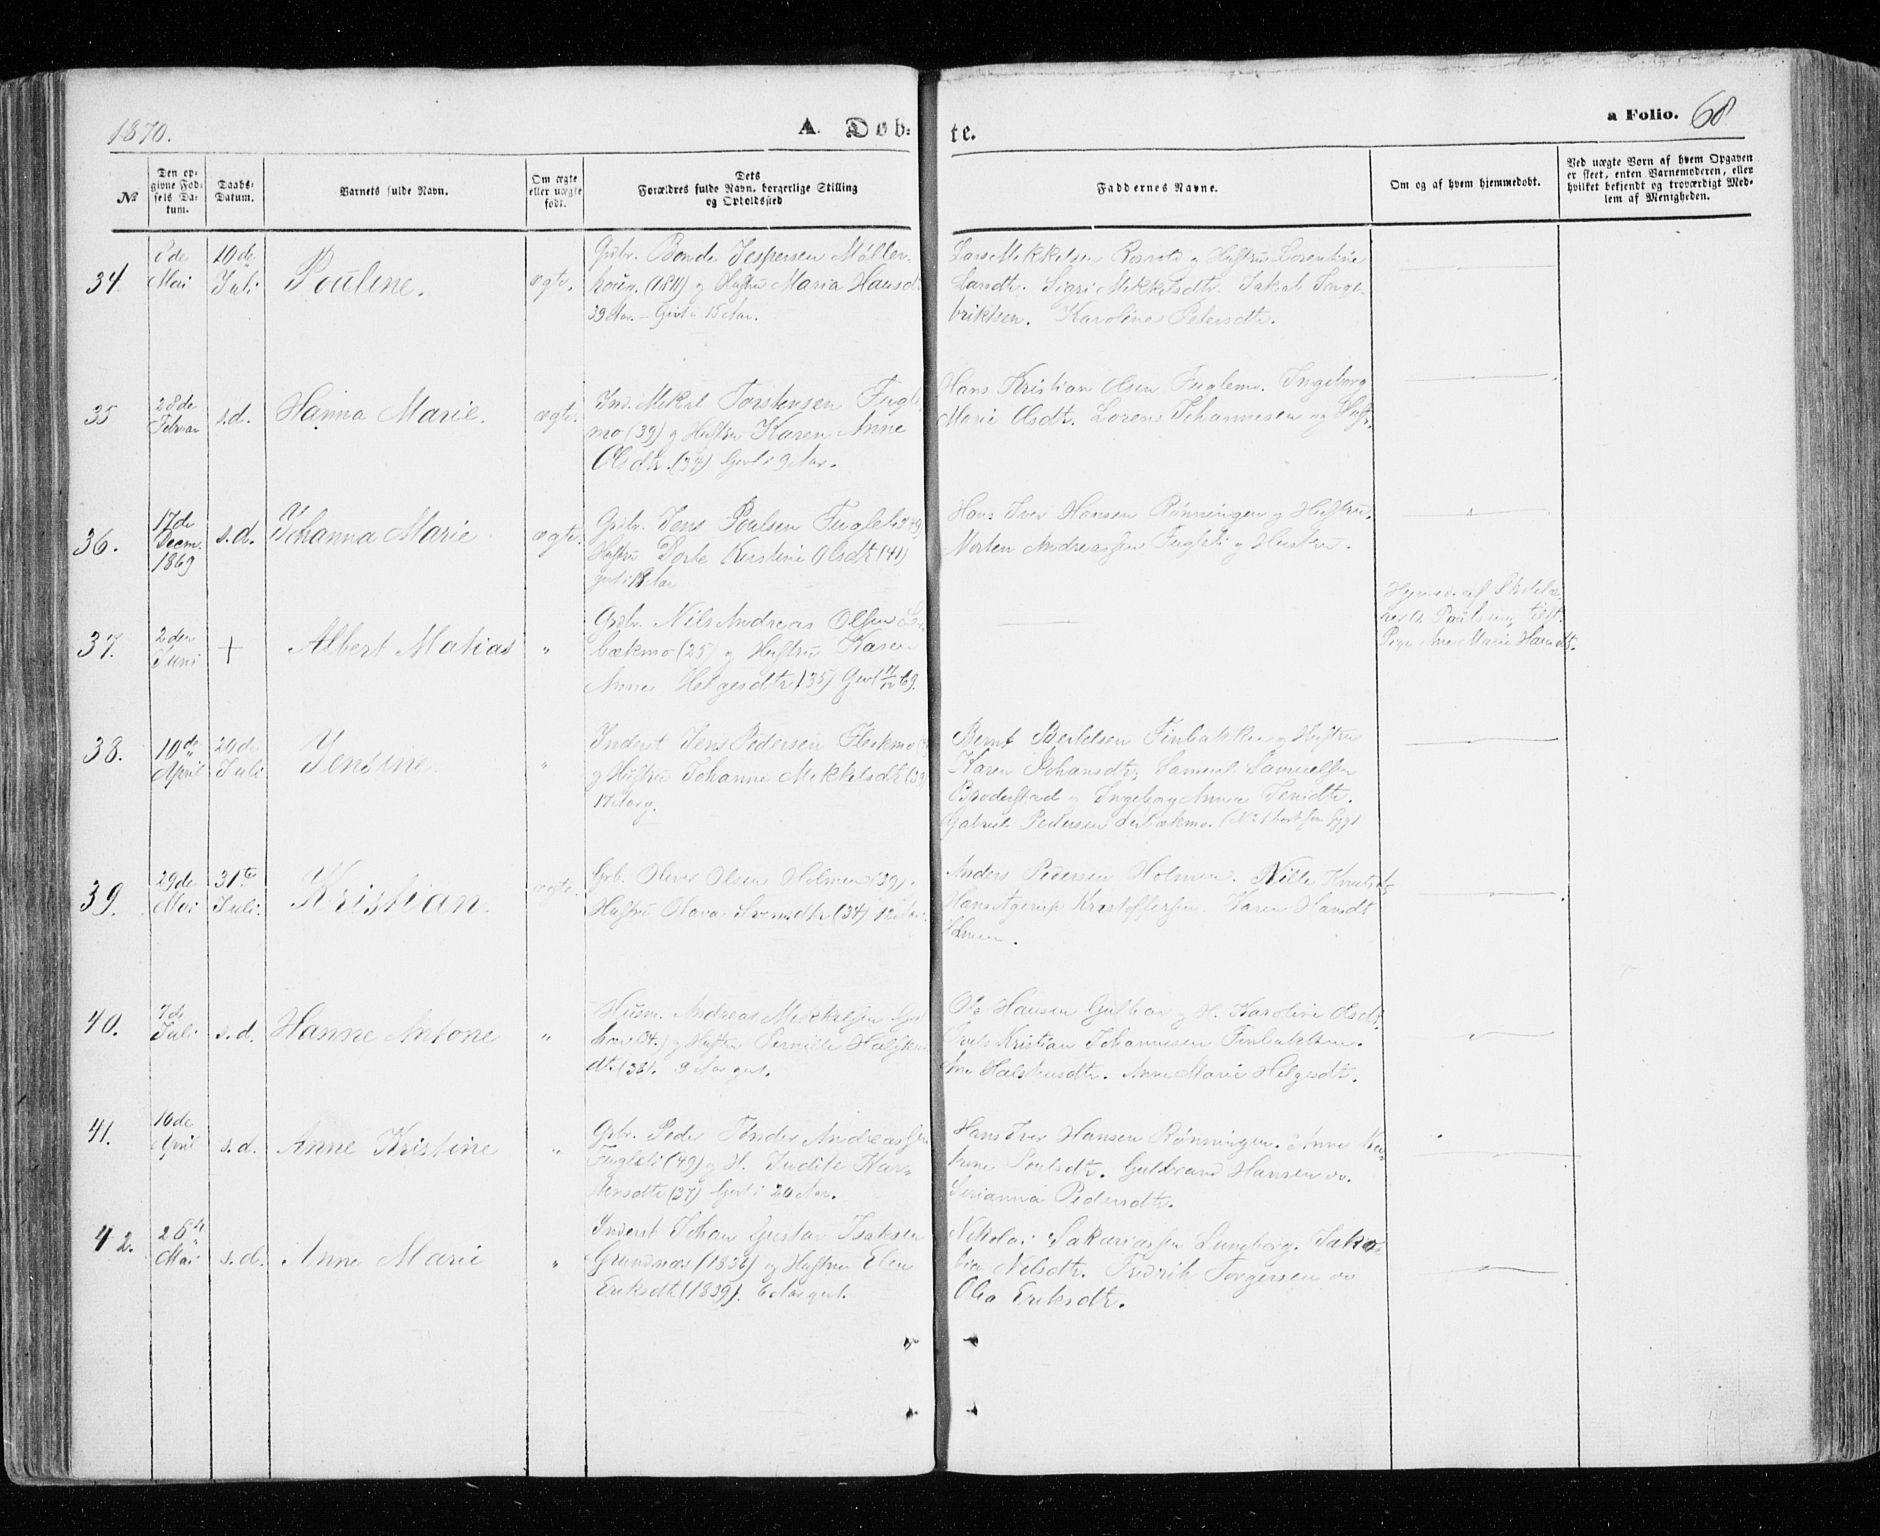 1870.
A. Døb-
te.
a Folio. 68
№
Den op-
givne Fød-
sels Da-
tum.
Daabs-
Datum.
Barnets fulde Navn.
Om ægte
eller uægte
født.
Dets
Forældres fulde Navn, borgerlige Stilling
og Opholdssted
Faddernes Navne.
Om og af hvem hjemmedøbt.
Ved uægte Børn af hvem Opgaven
er skeet, enten Barnemoderen, eller
hvilket bekjendt og troværdigt Med-
lem af Menigheden.
34.
8de
Mai
10de
Juli
Pouline.
ægte.
Grdbr. Bonde Jespersen Møller-
haug. (1811) og Hustru Maria Hansdt
39 Aar. – Givt i 15 Aar.
Lars Mekkelsen Rosvold og Hustru Lorentine
Larsdtr. Sigri Mekkelsdtr. Jakob Inge-
briktsen. Karoline Petersdtr.
35
28de
Februar
s.d.
Hanna Marie.
ægte.
Ind. Mekal Torstensen Fugle-
mo (39) og Hustru Karen Anne
Olsdtr. (34) Givt i 9 Aar.
Hans Kristian Olsen Fuglemo. Ingeborg
Marie Olsdtr. Lorens Johannesen og Hustr.
36.
17de
Decm.
1869
s.d.
Johanna Marie
ægte.
Grdbr. Jens Poulsen Fugleli (49)
Hustru Dorte Kirstine Olsdtr (41)
givt i 18 Aar
Hans Iver Hansen Rønningen og Hustru.
Morten Andreassen Fugleli og Hustru.
37.
2den
Juni
+
Albert Matias
"
Grdbr. Nils Andreas Olsen
bækmo (25) og Hustru Karen
Anne Helgesdtr (35) Givt 69.
Hjemmed. af
Poulsen,
Pige Ane Marie Hansdt.
38.
10de
April
20de
Juli
Jensine.
"
Inderst Jens Pedersen
og Hustru Johanne Mekkelsdtr (39)
17 Aar g.
Bernt Bertelsen Finbakken og Hustru
Karen Johansdtr. Samuel Samuelsen
Broderstad og Ingeborg Anna Jensdtr.
Gabriel Pedersen
39.
29de
Mai
31te
Juli.
Kristian.
ægte.
Grb. Oliver Olsen Holmen (39).
Hustru Olava Svensdtr (34) 12 Aar.
Anders Pedersen Holmen. Nille Knutsdtr
Hans Agerup Kristoffersen. Karen Hansdt
Holmen.
40.
7de
Juli
s.d.
Hanne Antone
"
Husm. Andreas Mekkelsen Gul-
hav (34.) og Hustru Pernille Halsten-
dtr. (38). 9 Aar givt.
Ole Hansen Gulhav og H. Karoline Olsdt.
Kristian Johannesen Finbakken.
Ane Halstensdtr. Anne Marie Helgesdtr.
41.
16de
April
s.d.
Anne Kristine
"
Grbr. Peder Tønder Andreassen
Fugleli (49) og H. Judite Kar-
stensdtr (37) Givt i 20 Aar.
Hans Iver Hansen Rønningen. Anne Ka-
trine Poulsdtr. Guldbrand Hansen og
Serianna Pedersdtr.
42.
26de
Mai
s.d.
Anne Marie
"
Inderst Johan Gustav Isaksen
Grundnæs (1836) og Hustru Elen
Eriksdtr (1839). 6 Aar givt.
Nikolai Sakariassen Luneborg. Jako-
bia Nelsdtr. Fredrik Torgersen og
Olia Eriksdtr.